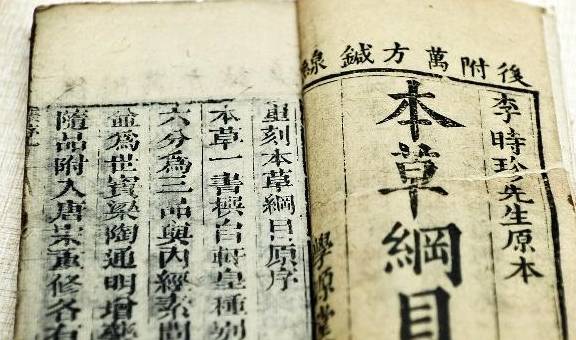 後附萬方鍼線
李時珍先生原本
本草綱目
重刻本草綱目原序
本草一書撰自軒皇種別
六分為三品與內經素問
為世寶梁陶通明增藥
隨品附入唐宋重修各有